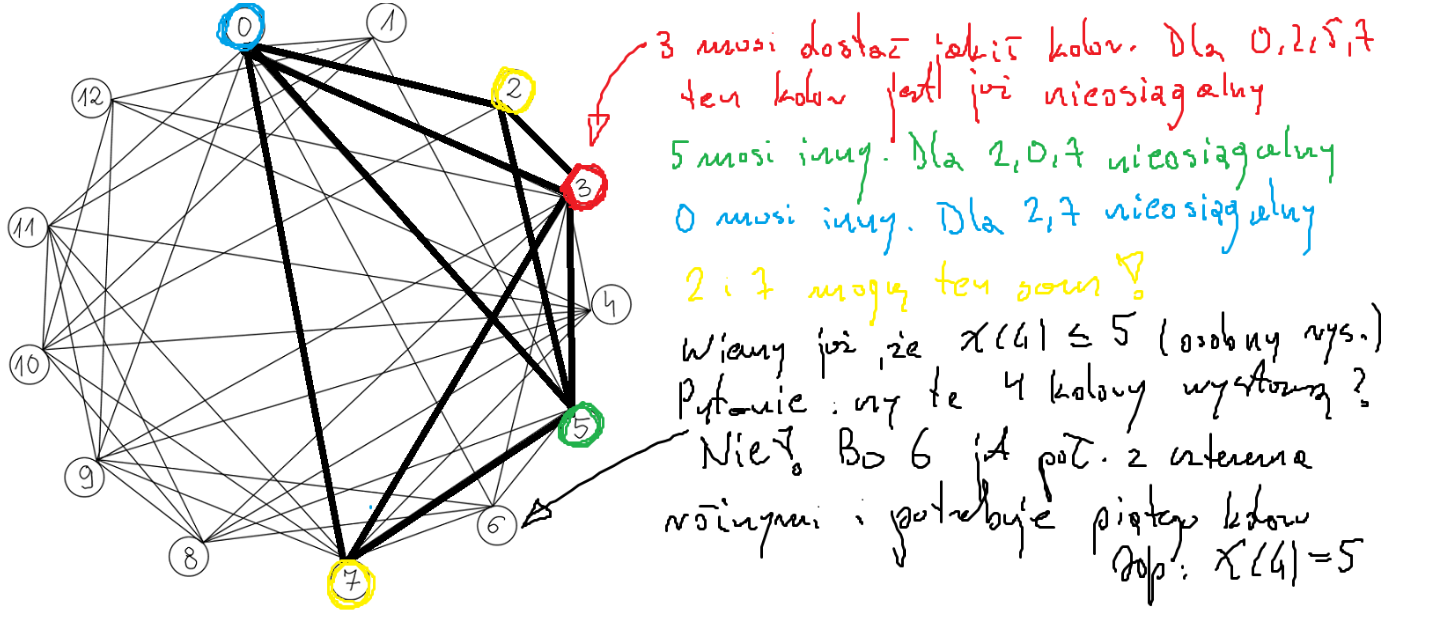 0
1
2
3
4
5
6
7
8
9
10
11
12
3 musi dostać jakiś kolor. Dla 0,2,5,7
ten kolor jest już nieosiągalny
5 musi inny. Dla 2,0,7 nieosiągalny
0 musi inny. Dla 2,7 nieosiągalny
2 i 7 mogą ten sam!
Wiemy już, że χ(G) ≤ 5 (osobny rys.)
Pytanie: czy te 4 kolory wystarczą?
Nie! Bo 6 jest poł. z czterema
różnymi i potrzebuje piątego koloru
Odp: χ(G) = 5